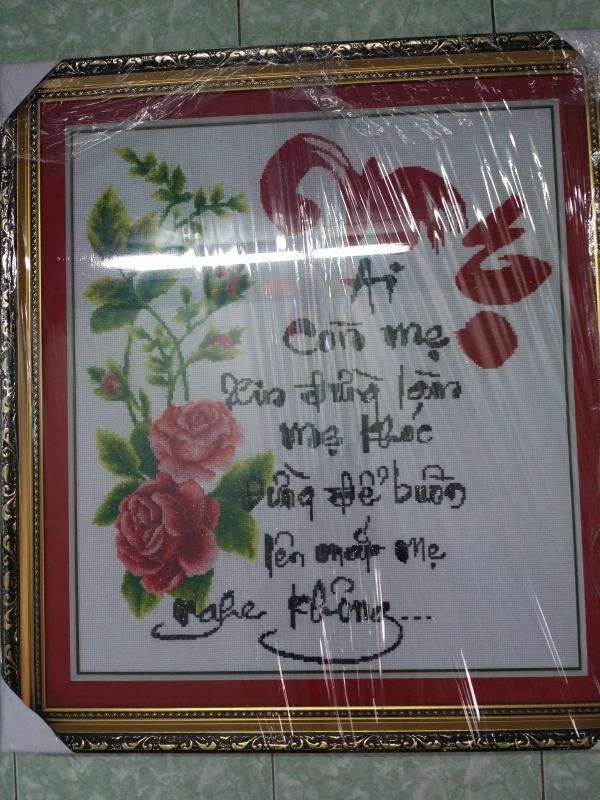 Mẹ
Ai
Còn mẹ
Xin đừng làm
mẹ khóc
Đừng để buồn
lên mắt mẹ
nghe không...